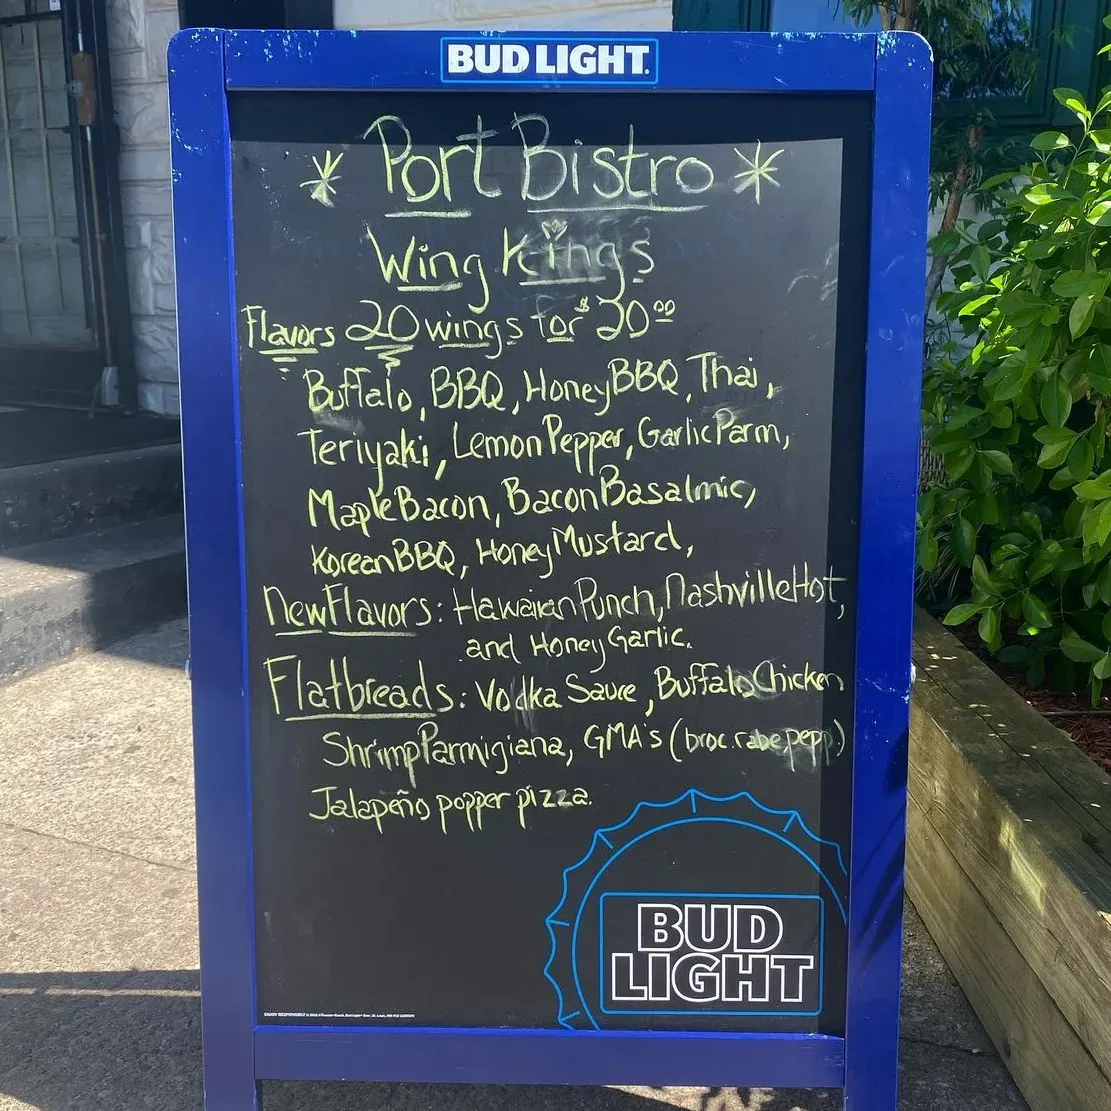 BUD LIGHT.
* Port Bistro *
Wing Kings
Flavors 20 wings for $20.00
Buffalo, BBQ, Honey BBQ, Thai,
Teriyaki, Lemon Pepper, Garlic Parm,
Maple Bacon, Bacon Basalmic,
Korean BBQ, Honey Mustard,
New Flavors: Hawaiian Punch, Nashville Hot,
and Honey Garlic.
Flatbreads: Vodka Sauce, Buffalo Chicken
Shrimp Parmigiana, GMA's (broc. rabe, pepp.)
Jalapeño popper pizza.
BUD
LIGHT